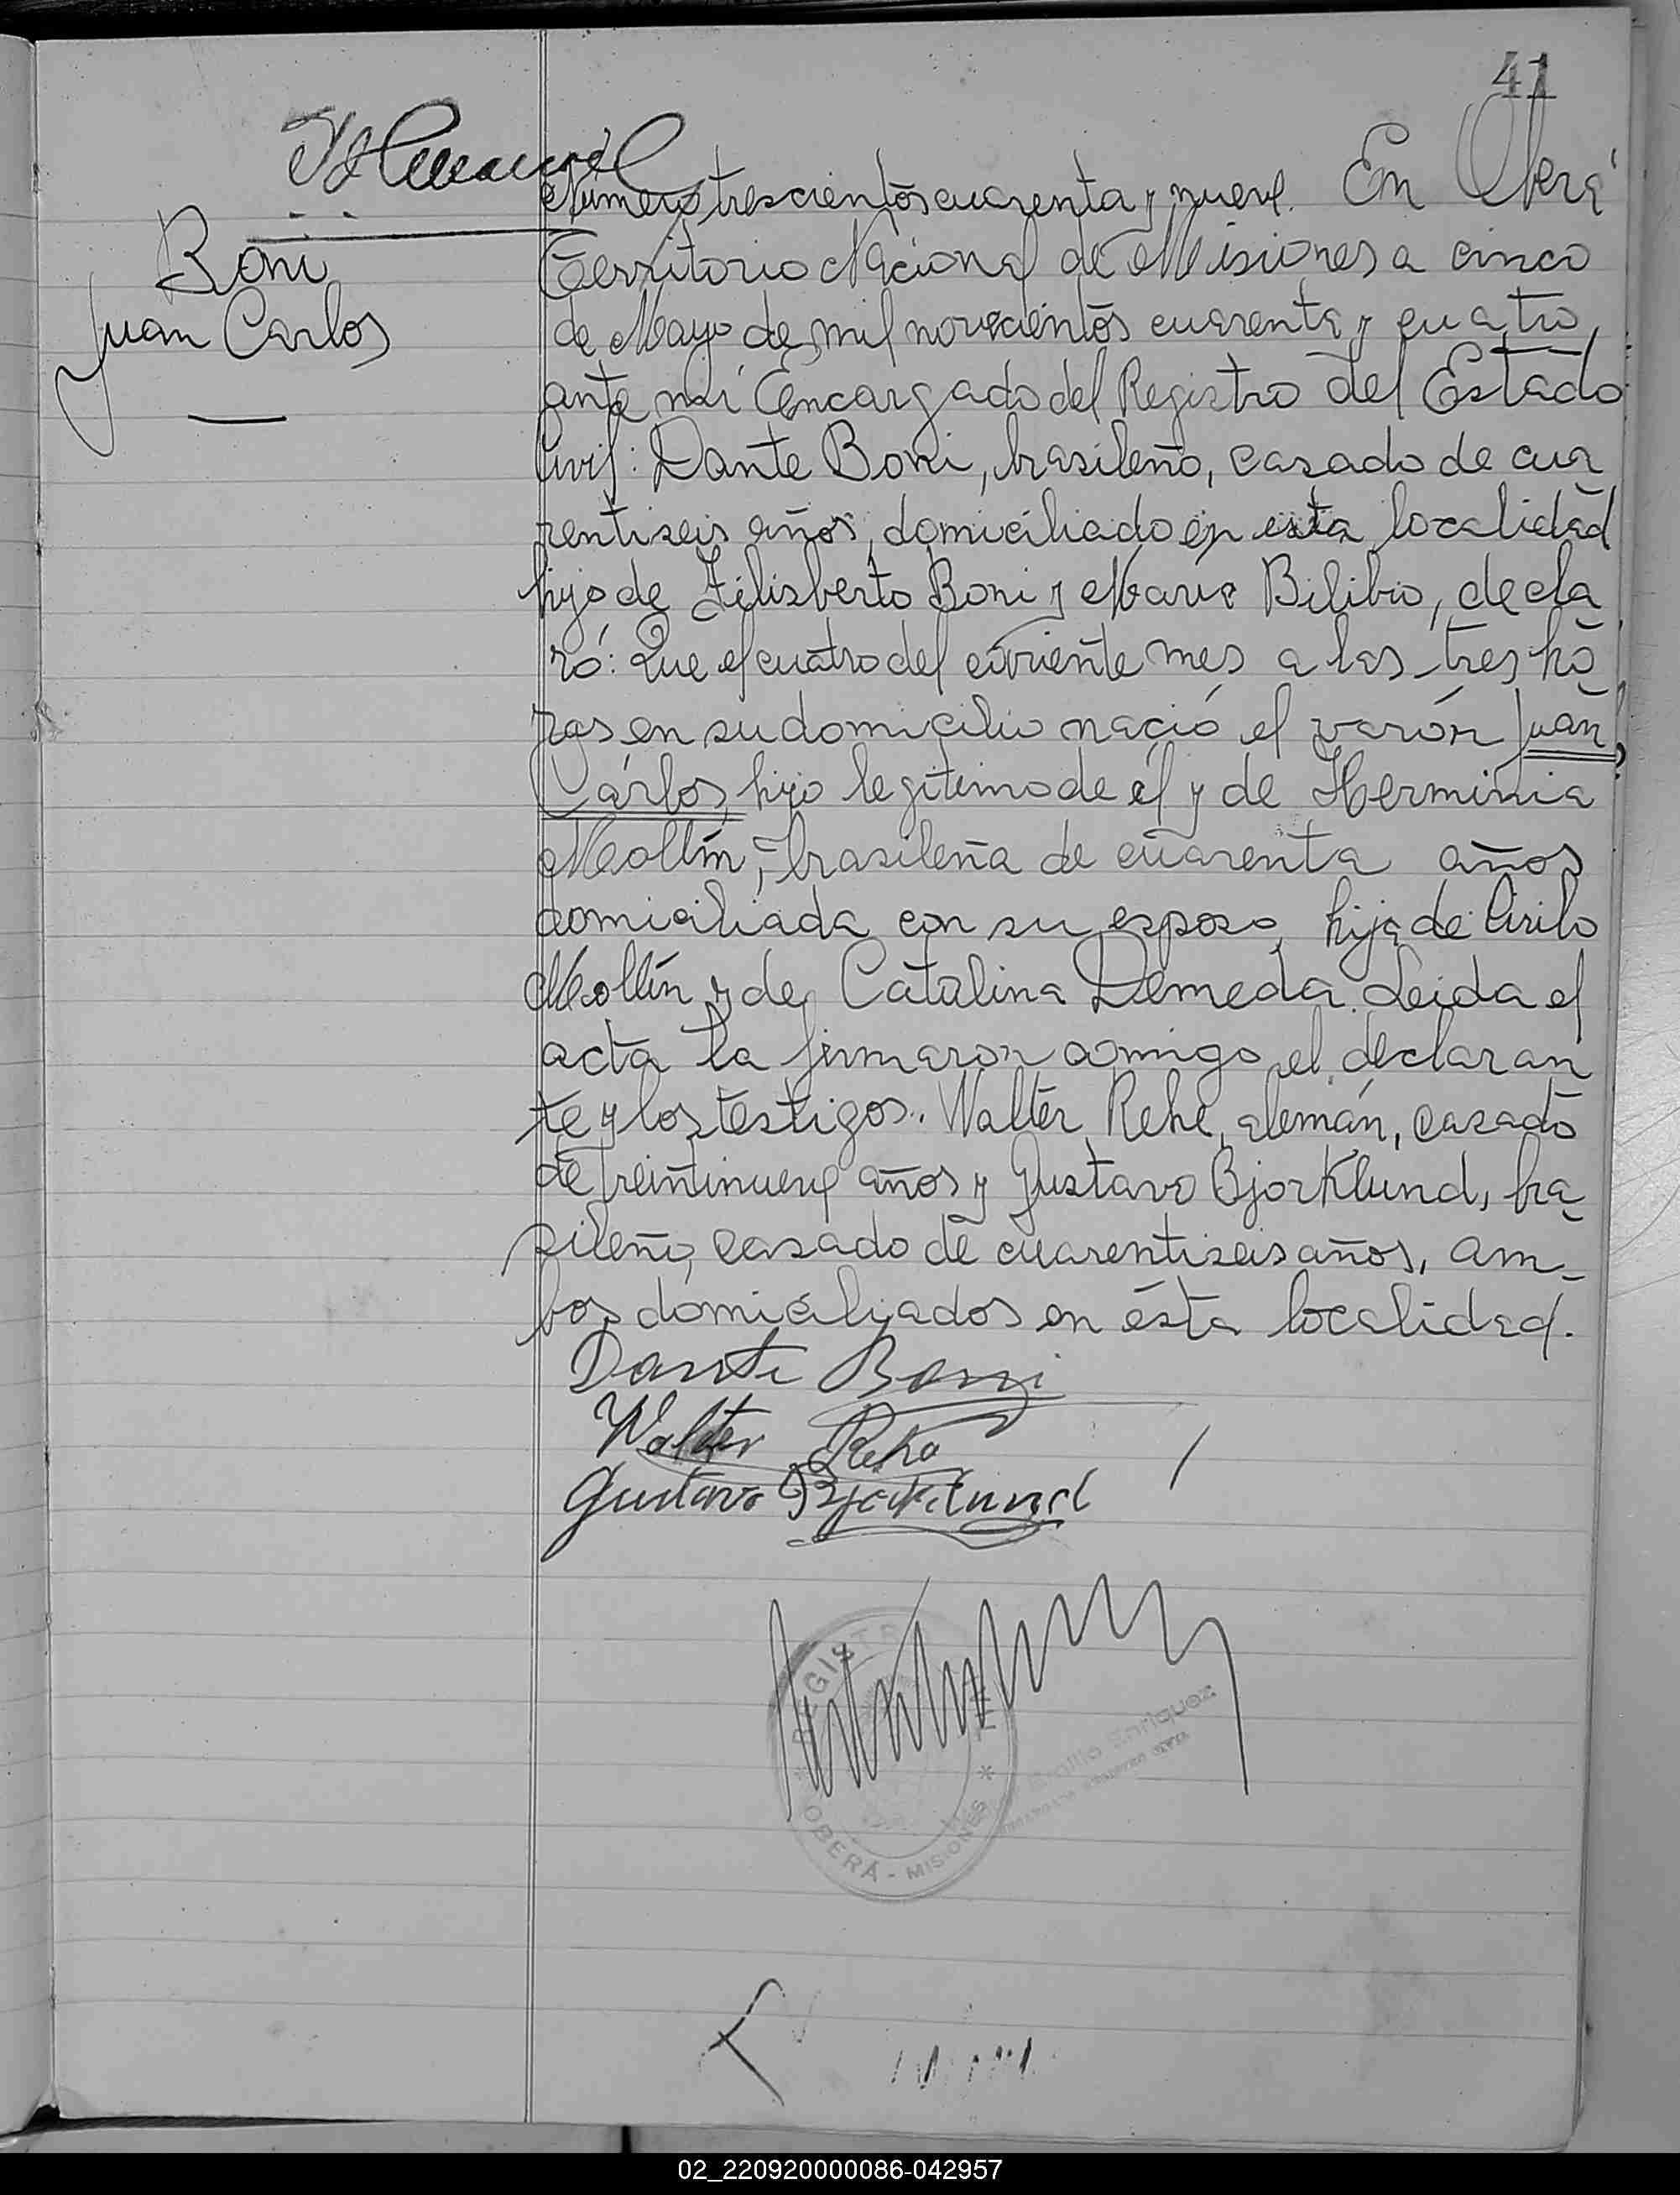 41
Boni
Juan Carlos
Número trescientos cuarenta y nueve. En Oberá
Territorio Nacional de Misiones a cinco
de Mayo de mil novecientos cuarenta y cuatro,
ante mí Encargado del Registro del Estado
Civil: Dante Boni, brasileño, casado de cua
rentiseis años, domiciliado en esta localidad
hijo de Filisberto Boni y María Bilibio, decla
ró: Que el cuatro del corriente mes a las tres ho
ras en su domicilio nació el varón Juan
Carlos, hijo legítimo de él y de Herminia
Mollin, brasileña de cuarenta años
domiciliada con su esposo, hija de Cirilo
Mollín y de Catalina Demeda. Leida el
acta la firmaron conmigo el declaran
te y los testigos. Walter Rehe, alemán, casado
de treintinueve años y Gustavo Bjorklund, bra
sileño, casado de cuarentiseis años, am-
bos domiciliados en ésta localidad.
Dante Boni
Walter
Gustavo Bjorklund
REGISTRO
OBERÁ - MISIONES
Enriquez
02_220920000086-042957